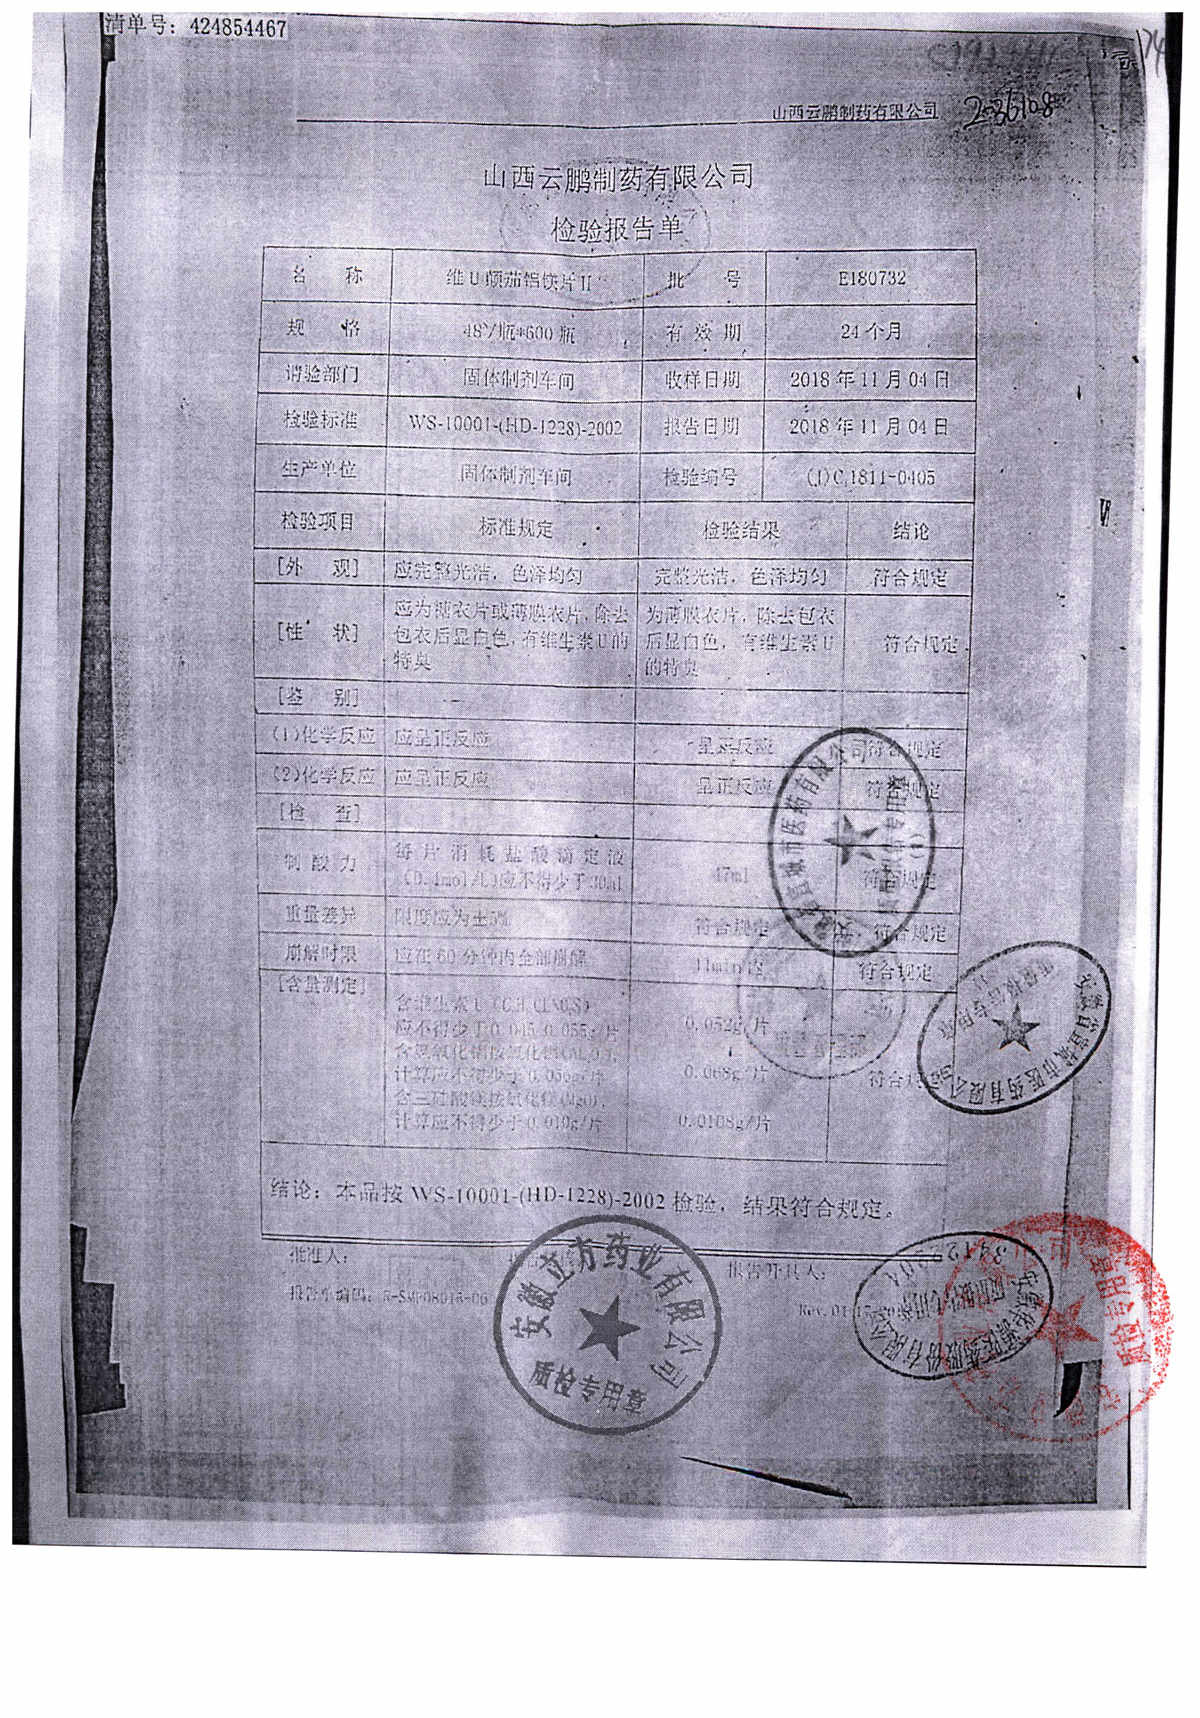 清单号：424854467
山西云鹏制药有限公司 2036108
山西云鹏制药有限公司
检验报告单
名 称 维U颠茄铝镁片II 批 号 E180732
规 格 48片/瓶*600瓶 有 效 期 24个月
请验部门 固体制剂车间 收样日期 2018年11月04日
检验标准 WS-10001-(HD-1228)-2002 报告日期 2018年11月04日
生产单位 固体制剂车间 检验编号 (J)C1811-0405
检验项目 标准规定 检验结果 结论
[外 观] 应完整光洁，色泽均匀 完整光洁，色泽均匀 符合规定
[性 状] 应为糖衣片或薄膜衣片，除去 为薄膜衣片，除去包衣
包衣后显白色，有维生素U的 后显白色，有维生素U 符合规定
特臭 的特臭
[鉴 别] --
(1)化学反应 应呈正反应 呈正反应 符合规定
(2)化学反应 应呈正反应 呈正反应 符合规定
[检 查]
制 酸 力 每片消耗盐酸滴定液
(0.1mol/L)应不得少于30ml 47ml 符合规定
重量差异 限度应为±5% 符合规定 符合规定
崩解时限 应在60分钟内全部崩解 11min 符合规定
[含量测定]
应不得少于0.045-0.055g/片 0.052g/片
计算应不得少于 0.068g/片 符合规定
含三硅酸镁按氧化镁(MgO)
计算应不得少于0.010g/片 0.0108g/片
结论：本品按WS-10001-(HD-1228)-2002检验，结果符合规定。
批准人： 报告开具人：
报告单编码：
安徽立方药业有限公司
质检专用章
安徽省宣城市医药有限公司
质检专用章